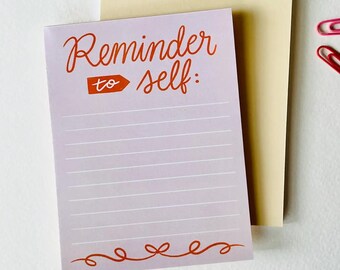 Reminder
to self: